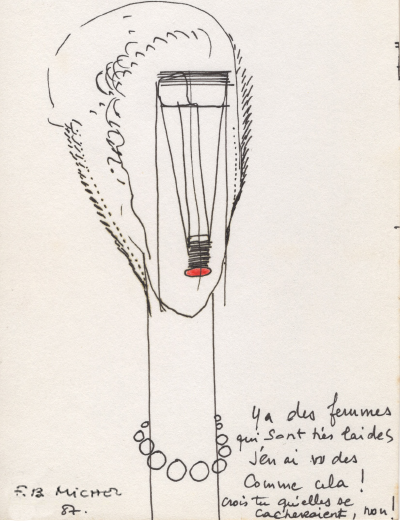 Y a des femmes
qui sont très laides
J'en ai vu des
Comme cela !
crois tu qu'elles se
cacheraient, non !
F.B MICHEL
87.